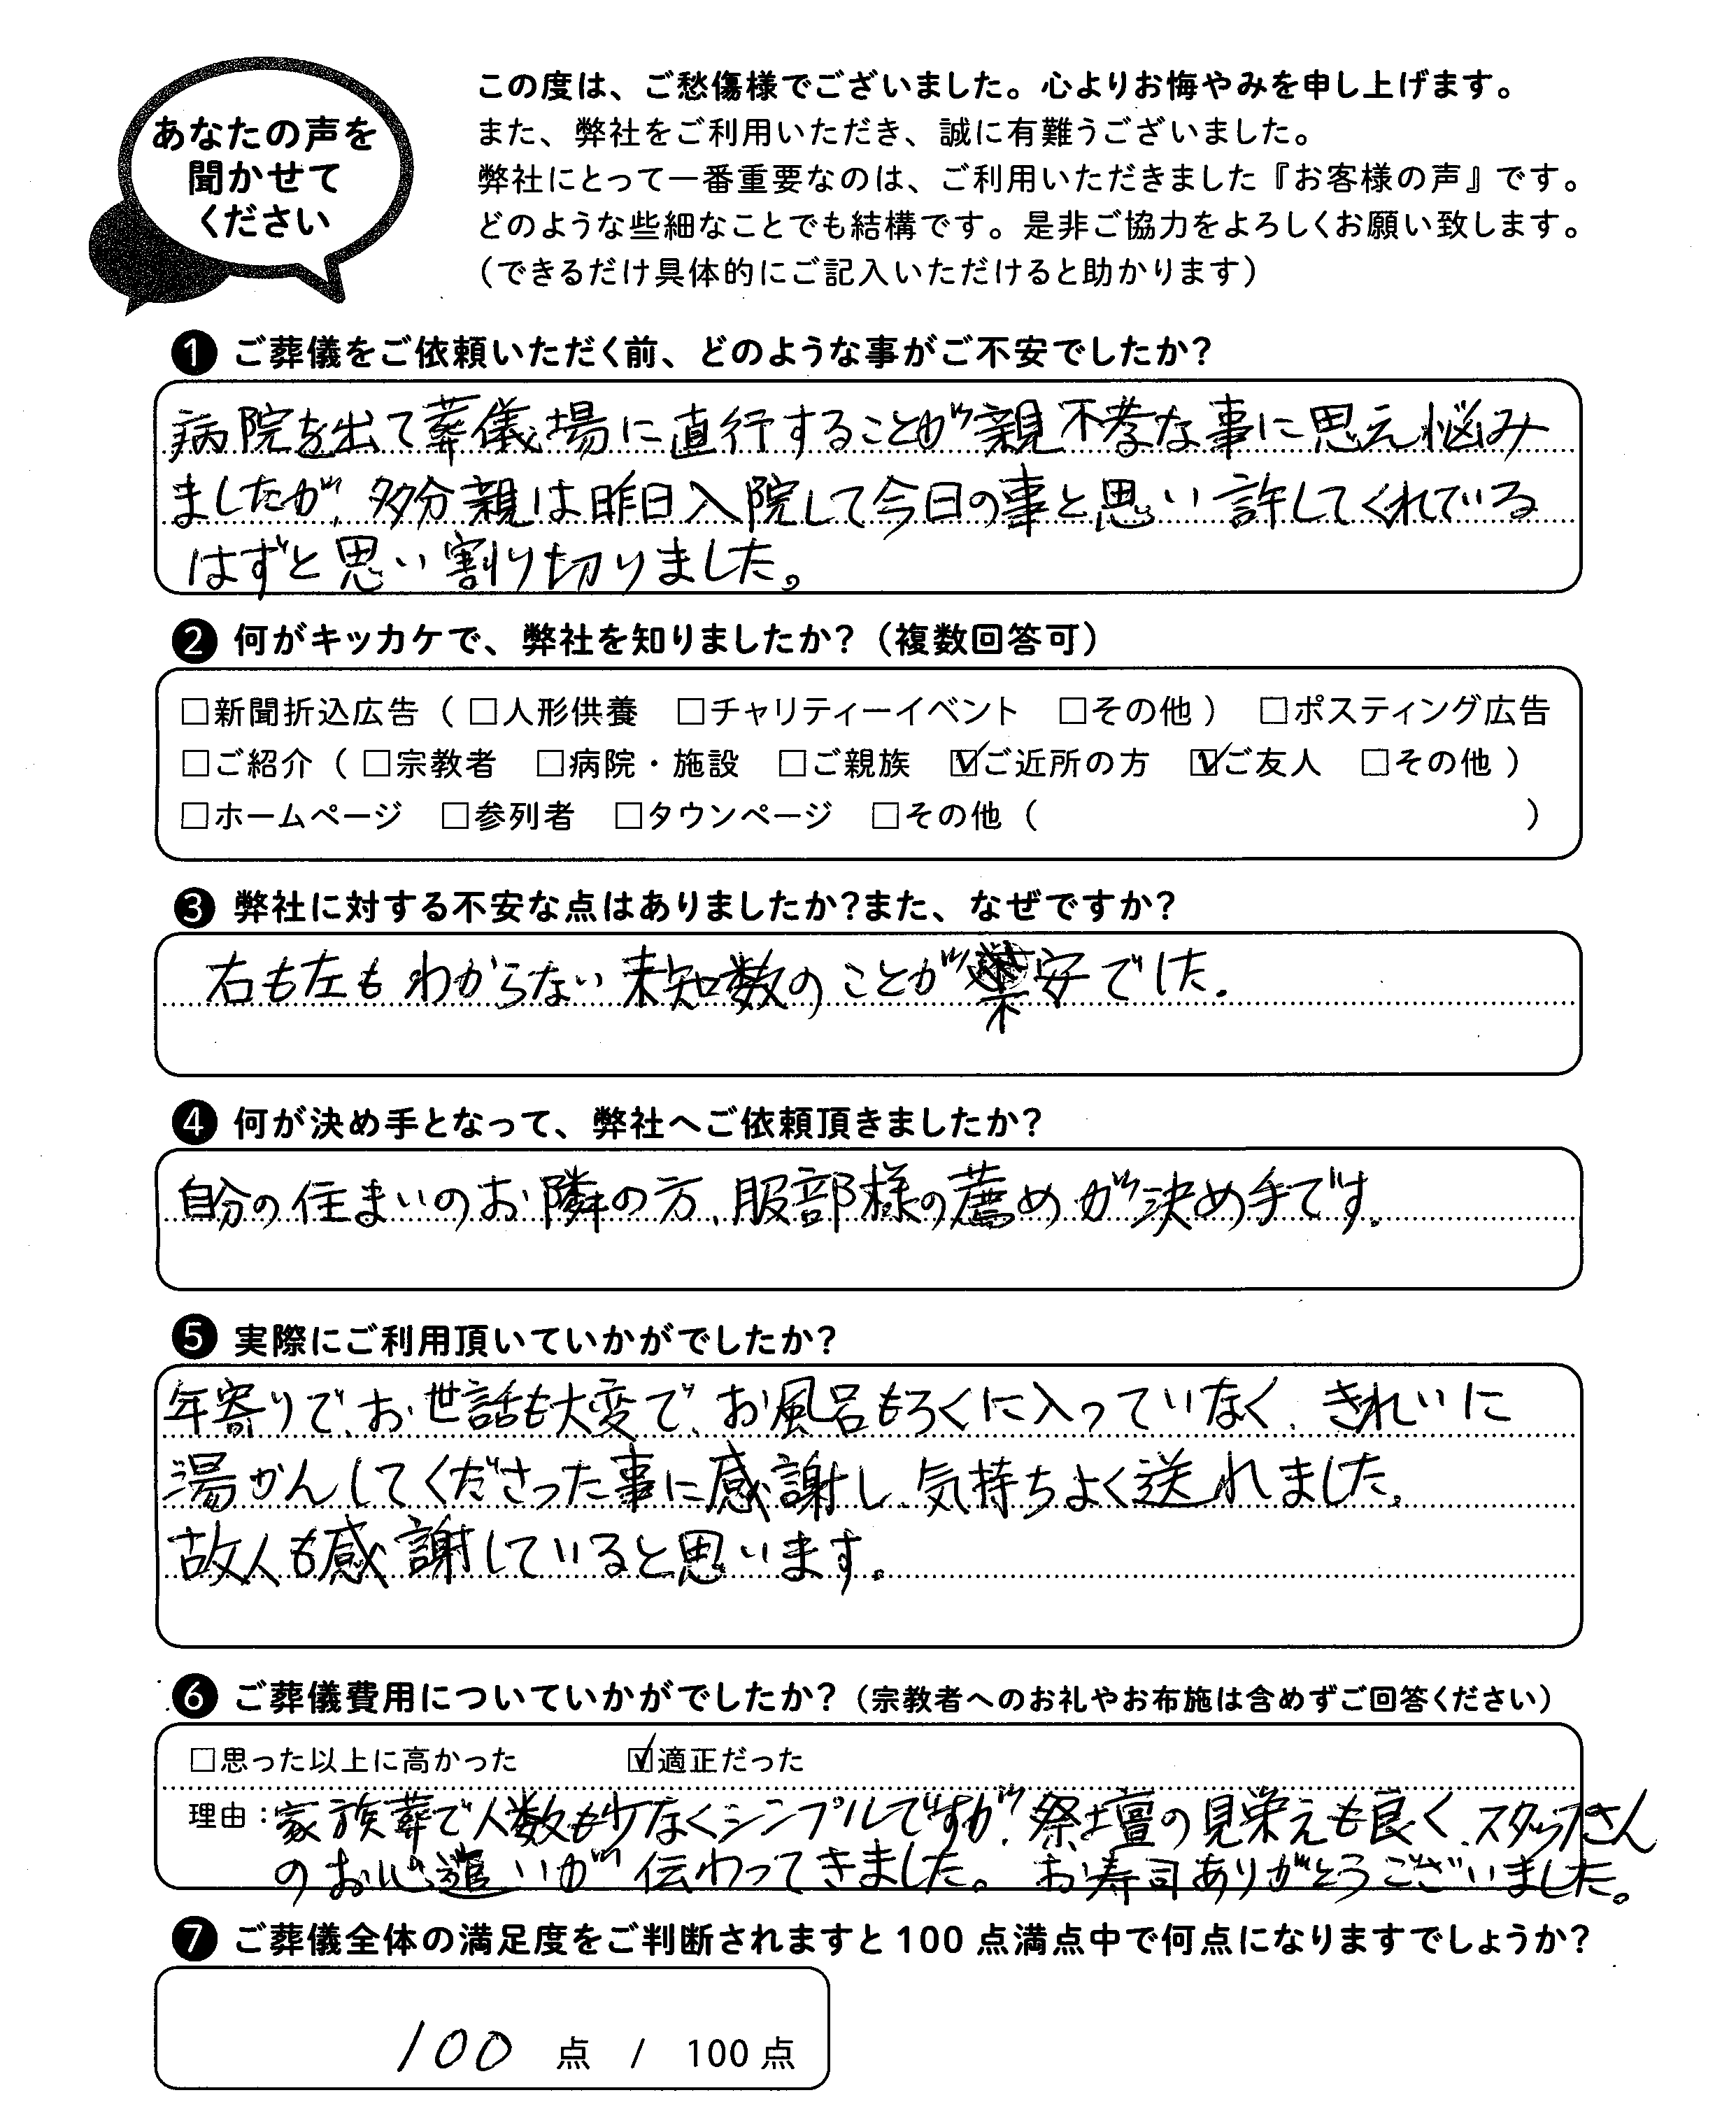 あなたの声を
聞かせて
ください
この度は、ご愁傷様でございました。心よりお悔やみを申し上げます。
また、弊社をご利用いただき、誠に有難うございました。
弊社にとって一番重要なのは、ご利用いただきました『お客様の声』です。
どのような些細なことでも結構です。是非ご協力をよろしくお願い致します。
（できるだけ具体的にご記入いただけると助かります）
❶ ご葬儀をご依頼いただく前、どのような事がご不安でしたか?
病院を出て葬儀場に直行することが親不孝な事に思え悩み
ましたが、多分親は昨日入院して今日の事と思い許してくれている
はずと思い割り切りました。
❷ 何がキッカケで、弊社を知りましたか?（複数回答可）
□新聞折込広告（□人形供養 □チャリティーイベント □その他） □ポスティング広告
□ご紹介（□宗教者 □病院・施設 □ご親族 ☑ご近所の方 ☑ご友人 □その他）
□ホームページ □参列者 □タウンページ □その他（ ）
❸ 弊社に対する不安な点はありましたか?また、なぜですか?
右も左もわからない未知数のことが不安でした.
❹ 何が決め手となって、弊社へご依頼頂きましたか?
自分の住まいのお隣の方、服部様の薦めが決め手です。
❺ 実際にご利用頂いていかがでしたか?
年寄りで、お世話も大変で、お風呂もろくに入っていなく、きれいに
湯かんしてくださった事に感謝し、気持ちよく送れました。
故人も感謝していると思います。
❻ ご葬儀費用についていかがでしたか?（宗教者へのお礼やお布施は含めずご回答ください）
□思った以上に高かった ☑適正だった
理由：家族葬で人数も少なくシンプルですが、祭壇の見栄えも良く、スタッフさん
のお心遣いが伝わってきました。お寿司ありがとうございました。
❼ ご葬儀全体の満足度をご判断されますと100点満点中で何点になりますでしょうか?
100 点 / 100点